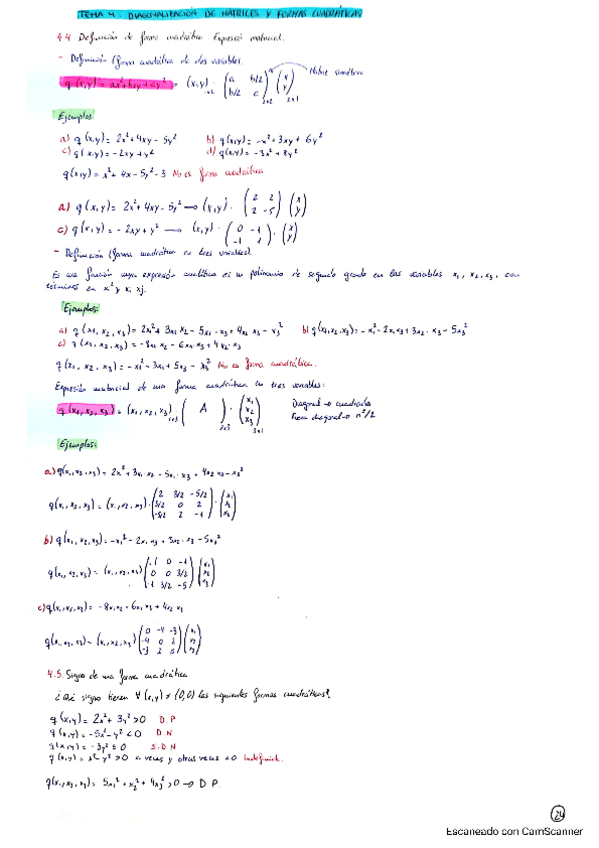 TEMA 4: DIAGONALIZACIÓN DE MATRICES Y FORMAS CUADRÁTICAS
4.4 Definición de forma cuadrática. Expresió matricial.
- Definición (forma cuadrática de dos variables.
q (x,y) = ax²+bxy+cy² = (x,y)₁ₓ₂ · (a b/2; b/2 c)₂ₓ₂ (x; y)₂ₓ₁ → Matriz simétrica
Ejemplos:
a) q (x,y) = 2x²+4xy-5y² b) q(x,y) = -x²+3xy+6y²
c) q(x,y) = -2xy+y² d) q(x,y) = -3x²+8y²
q(x,y) = x²+4x-5y²-3 No es forma cuadrática
a) q (x,y) = 2x²+4xy-5y² → (x,y) · (2 2; 2 -5) (x; y)
c) q (x,y) = -2xy+y² → (x,y) · (0 -1; -1 1) · (x; y)
- Definición (forma cuadrática en tres variables).
Es una función cuya expresión analítica es un polinomio de segundo grado en las variables x₁, x₂, x₃, con
términos en x² y xᵢ xⱼ.
Ejemplos:
a) q (x₁, x₂, x₃) = 2x₁²+3x₁x₂-5x₁·x₃+4x₂x₃-x₃² b) q(x₁,x₂,x₃) = -x₁²-2x₁x₃+3x₂·x₃-5x₃²
c) q (x₁, x₂, x₃) = -8x₁x₂-6x₁x₃+4x₂x₃
q(x₁, x₂, x₃) = -x₁²-3x₁+5x₃-x₃² No es forma cuadrática.
Expresión matricial de una forma cuadrática en tres variables:
q (x₁, x₂, x₃) = (x₁, x₂, x₃)₁ₓ₃ · ( A )₃ₓ₃ · (x₁; x₂; x₃)₃ₓ₁ Diagonal → cuadrados
Fuera diagonal → nº/2
Ejemplos:
a) q(x₁,x₂,x₃) = 2x₁²+3x₁x₂-5x₁·x₃+4x₂x₃-x₃²
q(x₁, x₂, x₃) = (x₁, x₂, x₃) · (2 3/2 -5/2; 3/2 0 2; -5/2 2 -1) · (x₁; x₂; x₃)
b) q(x₁, x₂, x₃) = -x₁²-2x₁x₃+3x₂·x₃-5x₃²
q(x₁, x₂, x₃) = (x₁, x₂, x₃) (-1 0 -1; 0 0 3/2; -1 3/2 -5) (x₁; x₂; x₃)
c) q(x₁, x₂, x₃) = -8x₁x₂-6x₁x₃+4x₂x₃
q(x₁, x₂, x₃) = (x₁, x₂, x₃) (0 -4 -3; -4 0 2; -3 2 0) (x₁; x₂; x₃)
4.5 Signo de una forma cuadrática
¿Qué signo tienen ∀ (x,y) ≠ (0,0) las siguientes formas cuadráticas?
q (x,y) = 2x²+3y² >0 D.P
q (x,y) = -5x²-y² <0 D.N
q (x,y) = -3y² ≤0 S.D.N
q (x,y) = x²-y² >0 a veces y otras veces <0 Indefinida.
q(x₁, x₂, x₃) = 5x₁²+x₂²+4x₃² >0 → D.P.
24
Escaneado con CamScanner